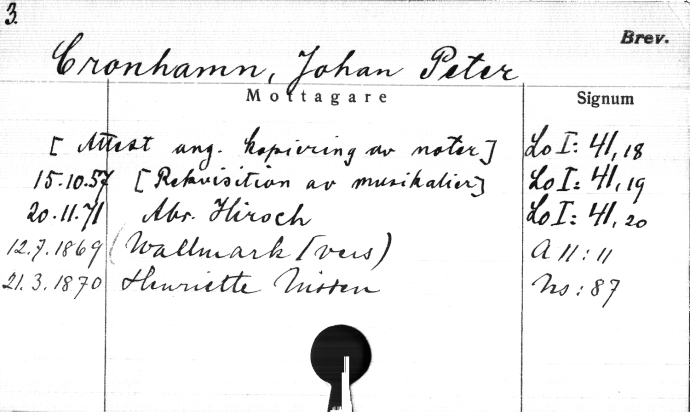 3.
Brev.
Cronhamn, Johan Peter
Mottagare Signum
[Attest ang. kopiering av noter] Lo I: 41, 18
15.10.57 [Rekvisition av musikalier] Lo I: 41, 19
20.11.71 Abr. Hirsch Lo I: 41, 20
12.7.1869 (Wallmark [vers) A 11:11
21.3.1870 Henriette Nissen Ns: 87